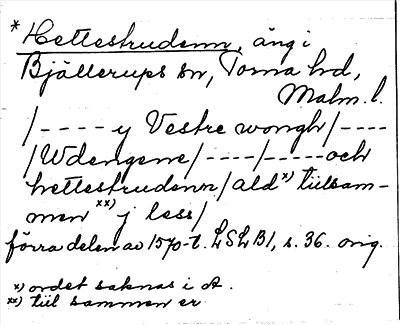 * Hettestrudenn, äng i
Bjällerups sn, Torna hd,
Malm. l.
/---- y Vestre wongh/----
/Wdengene/----/-----och
hettestrudenn/ald x) tiilsam-
men xx) j less/
förra delen av 1570-t. LSLB1, s. 36. orig.
x) ordet saknas i A.
xx) tiil sammen er